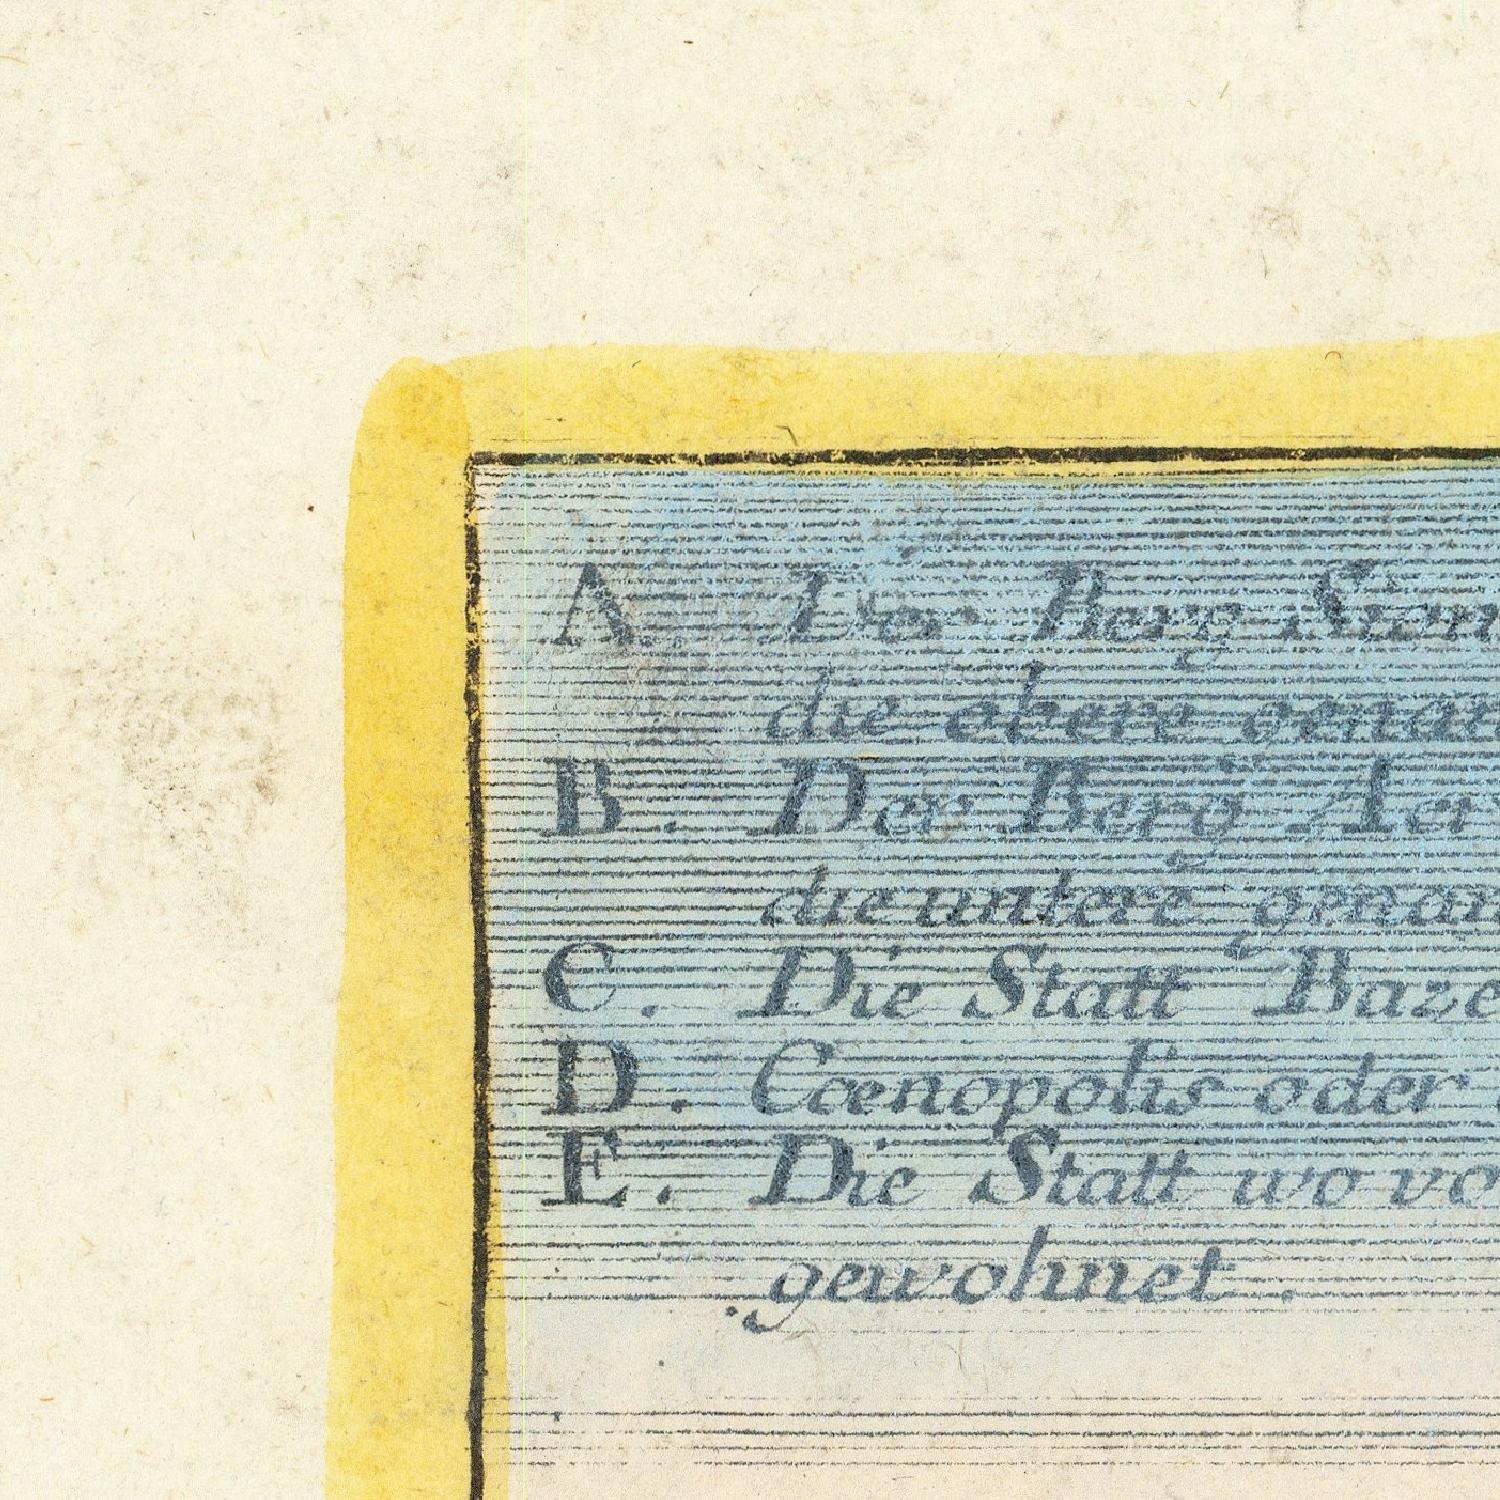 A. Der Berg Sion
die obere genan
B. Der Berg Acr
die untere genan
C. Die Statt Baze
D. Cœnopolis oder
E. Die Statt wo vo
gewohnet.